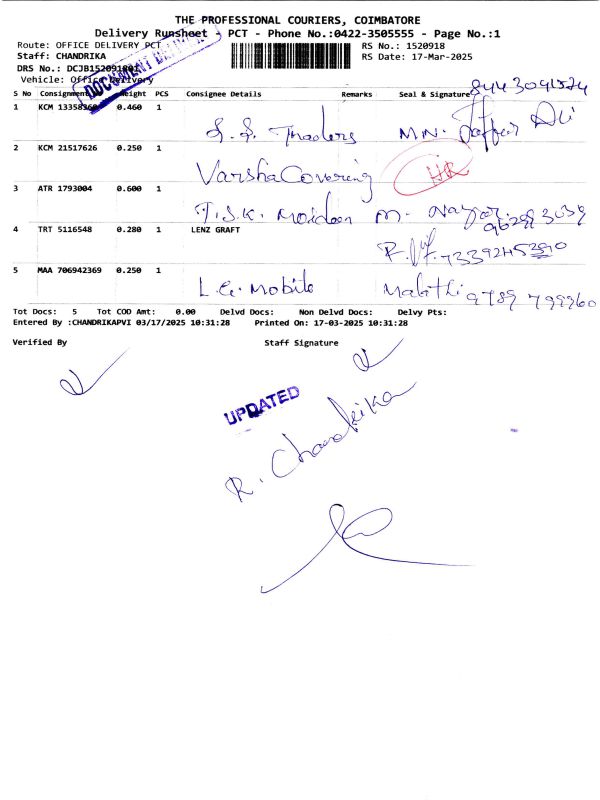 THE PROFESSIONAL COURIERS, COIMBATORE
Delivery Runsheet - PCT - Phone No.:0422-3505555 - Page No.:1
Route: OFFICE DELIVERY PCT
RS No.: 1520918
Staff: CHANDRIKA
RS Date: 17-Mar-2025
DRS No.: DCJB1520918001
Vehicle: Office Delivery
DOCUMENT DELIVERY
8443041574
S No Consignment Weight PCS Consignee Details Remarks Seal & Signature
1 KCM 0.460 1 S.S. Traders M.N. Jaffar Ali
2 KCM 21517626 0.250 1 Varsha Covering HR
3 ATR 1793004 0.600 1 T.S.K. Moideen M.
4 TRT 5116548 0.280 1 LENZ GRAFT 7339245390
5 MAA 706942369 0.250 1 L.G. Mobile Malathi 9789 799960
Tot Docs: 5 Tot COD Amt: 0.00 Delvd Docs: Non Delvd Docs: Delvy Pts:
Entered By :CHANDRIKAPVI 03/17/2025 10:31:28 Printed On: 17-03-2025 10:31:28
Verified By Staff Signature
UPDATED
R. Chandrika